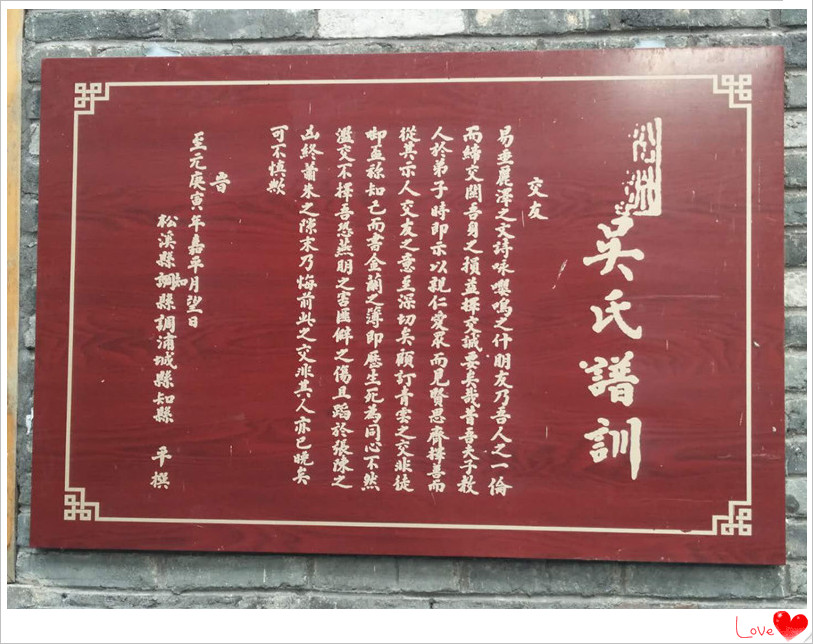 吳氏譜訓
交友
易垂麗澤之文詩咏嚶鳴之什朋友乃吾人之一倫
而締交關吾身之損益擇交誠要矣哉昔吾夫子教
人於弟子時即示以親仁愛眾而見賢思齊擇善而
從其示人交友之意至深切矣顧訂青雲之交非徒
啣盃稱知己而書金蘭之簿即歷生死為同心不然
濫交不擇吾恐燕朋之害匪僻之傷且蹈於張陳之
凶終蕭朱之隙末乃悔前此之交非其人亦已晚矣
可不慎歟
旹
至元庚寅年嘉平月望日
松溪縣知縣調浦城縣知縣 平撰
Love